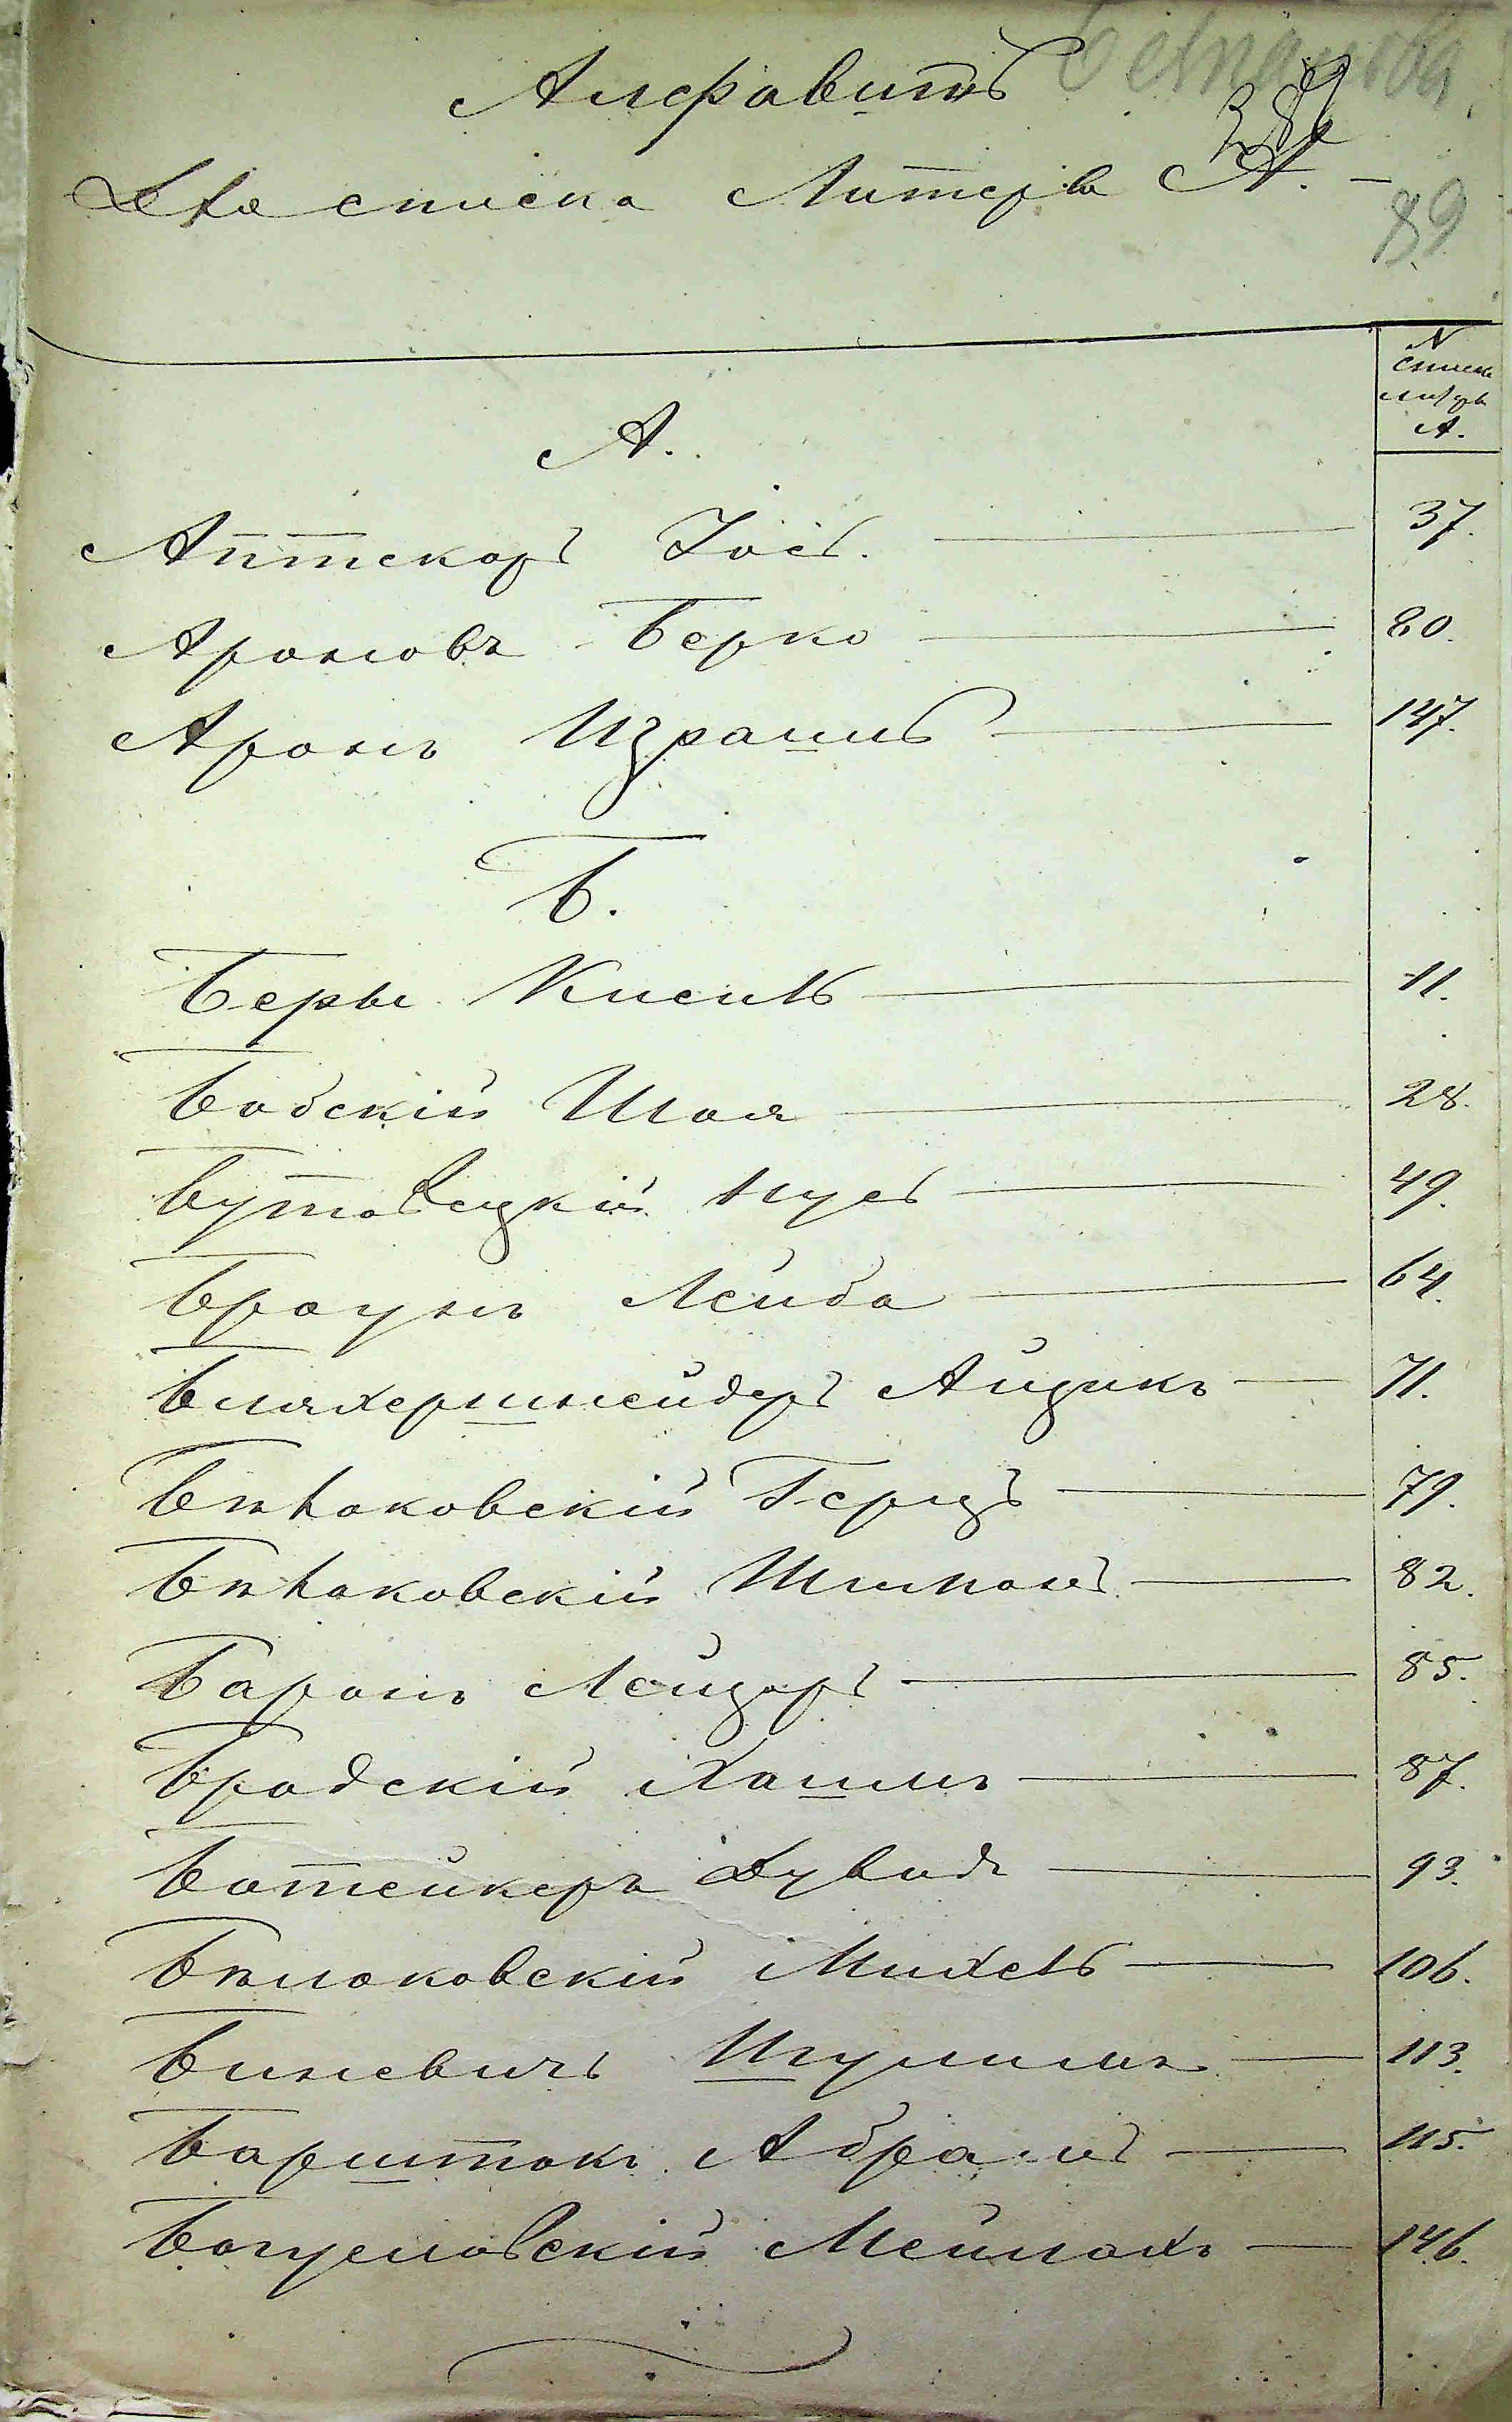 Алфавитъ
Для списка Литера А.
89
N
списк
литера
А.
А.
Аптекарь Іось. 37.
Ароновъ Берко 80.
Аронъ Израиль 147.
Б.
Беръ Кисель 11.
Бабскій Шая 28.
Бутовецкій Нусь 49.
Браунъ Лейба 64.
Бляхершнейдеръ Айзикъ 71.
Бѣлаковскій Герцъ 79.
Бѣлаковскій Шимонъ 82.
Баронъ Лейзаръ 85.
Бродскій Хаимъ 87.
Ботейкеръ Дувидъ 93.
Бѣлаковскій Михель 106.
Биневичъ Шулимъ 113.
Барштакъ Абрамъ 115.
Богуславскій Меймахъ 146.